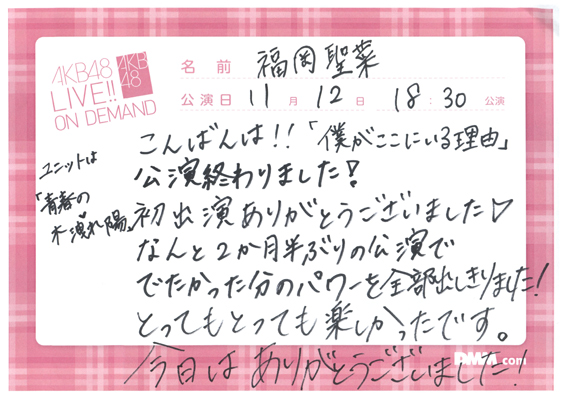 AKB48
LIVE!!
ON DEMAND
AKB
48
名前 福岡聖菜
公演日 11月 12日 18:30 公演
ユニットは
「青春の
木洩れ陽」
こんばんは!!「僕がここにいる理由」
公演終わりました!
初出演ありがとうございました♡
なんと2か月半ぶりの公演で
でたかった分のパワーを全部出しきりました!
とってもとっても楽しかったです。
今日はありがとうございました!
DMM.com